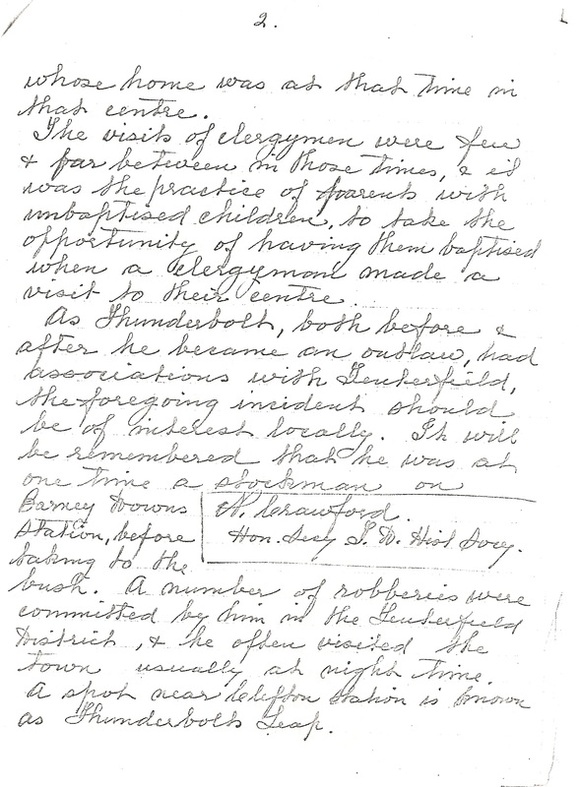 2.
whose home was at that time in
that centre.
The visits of clergymen were few
& far between in those times, & it
was the practice of parents with
unbaptised children, to take the
opportunity of having them baptised
when a clergyman made a
visit to their centre.
As Thunderbolt, both before &
after he became an outlaw, had
associations with Tenterfield,
the foregoing incident should
be of interest locally. It will
be remembered that he was at
one time a stockman on
Barney Downs
Station, before
taking to the
N. Crawford.
Hon. Secy T. D. Hist Socy.
bush. A number of robberies were
committed by him in the Tenterfield
District, & he often visited the
town usually at night time.
A spot near Cliffton Station is known
as Thunderbolts Leap.